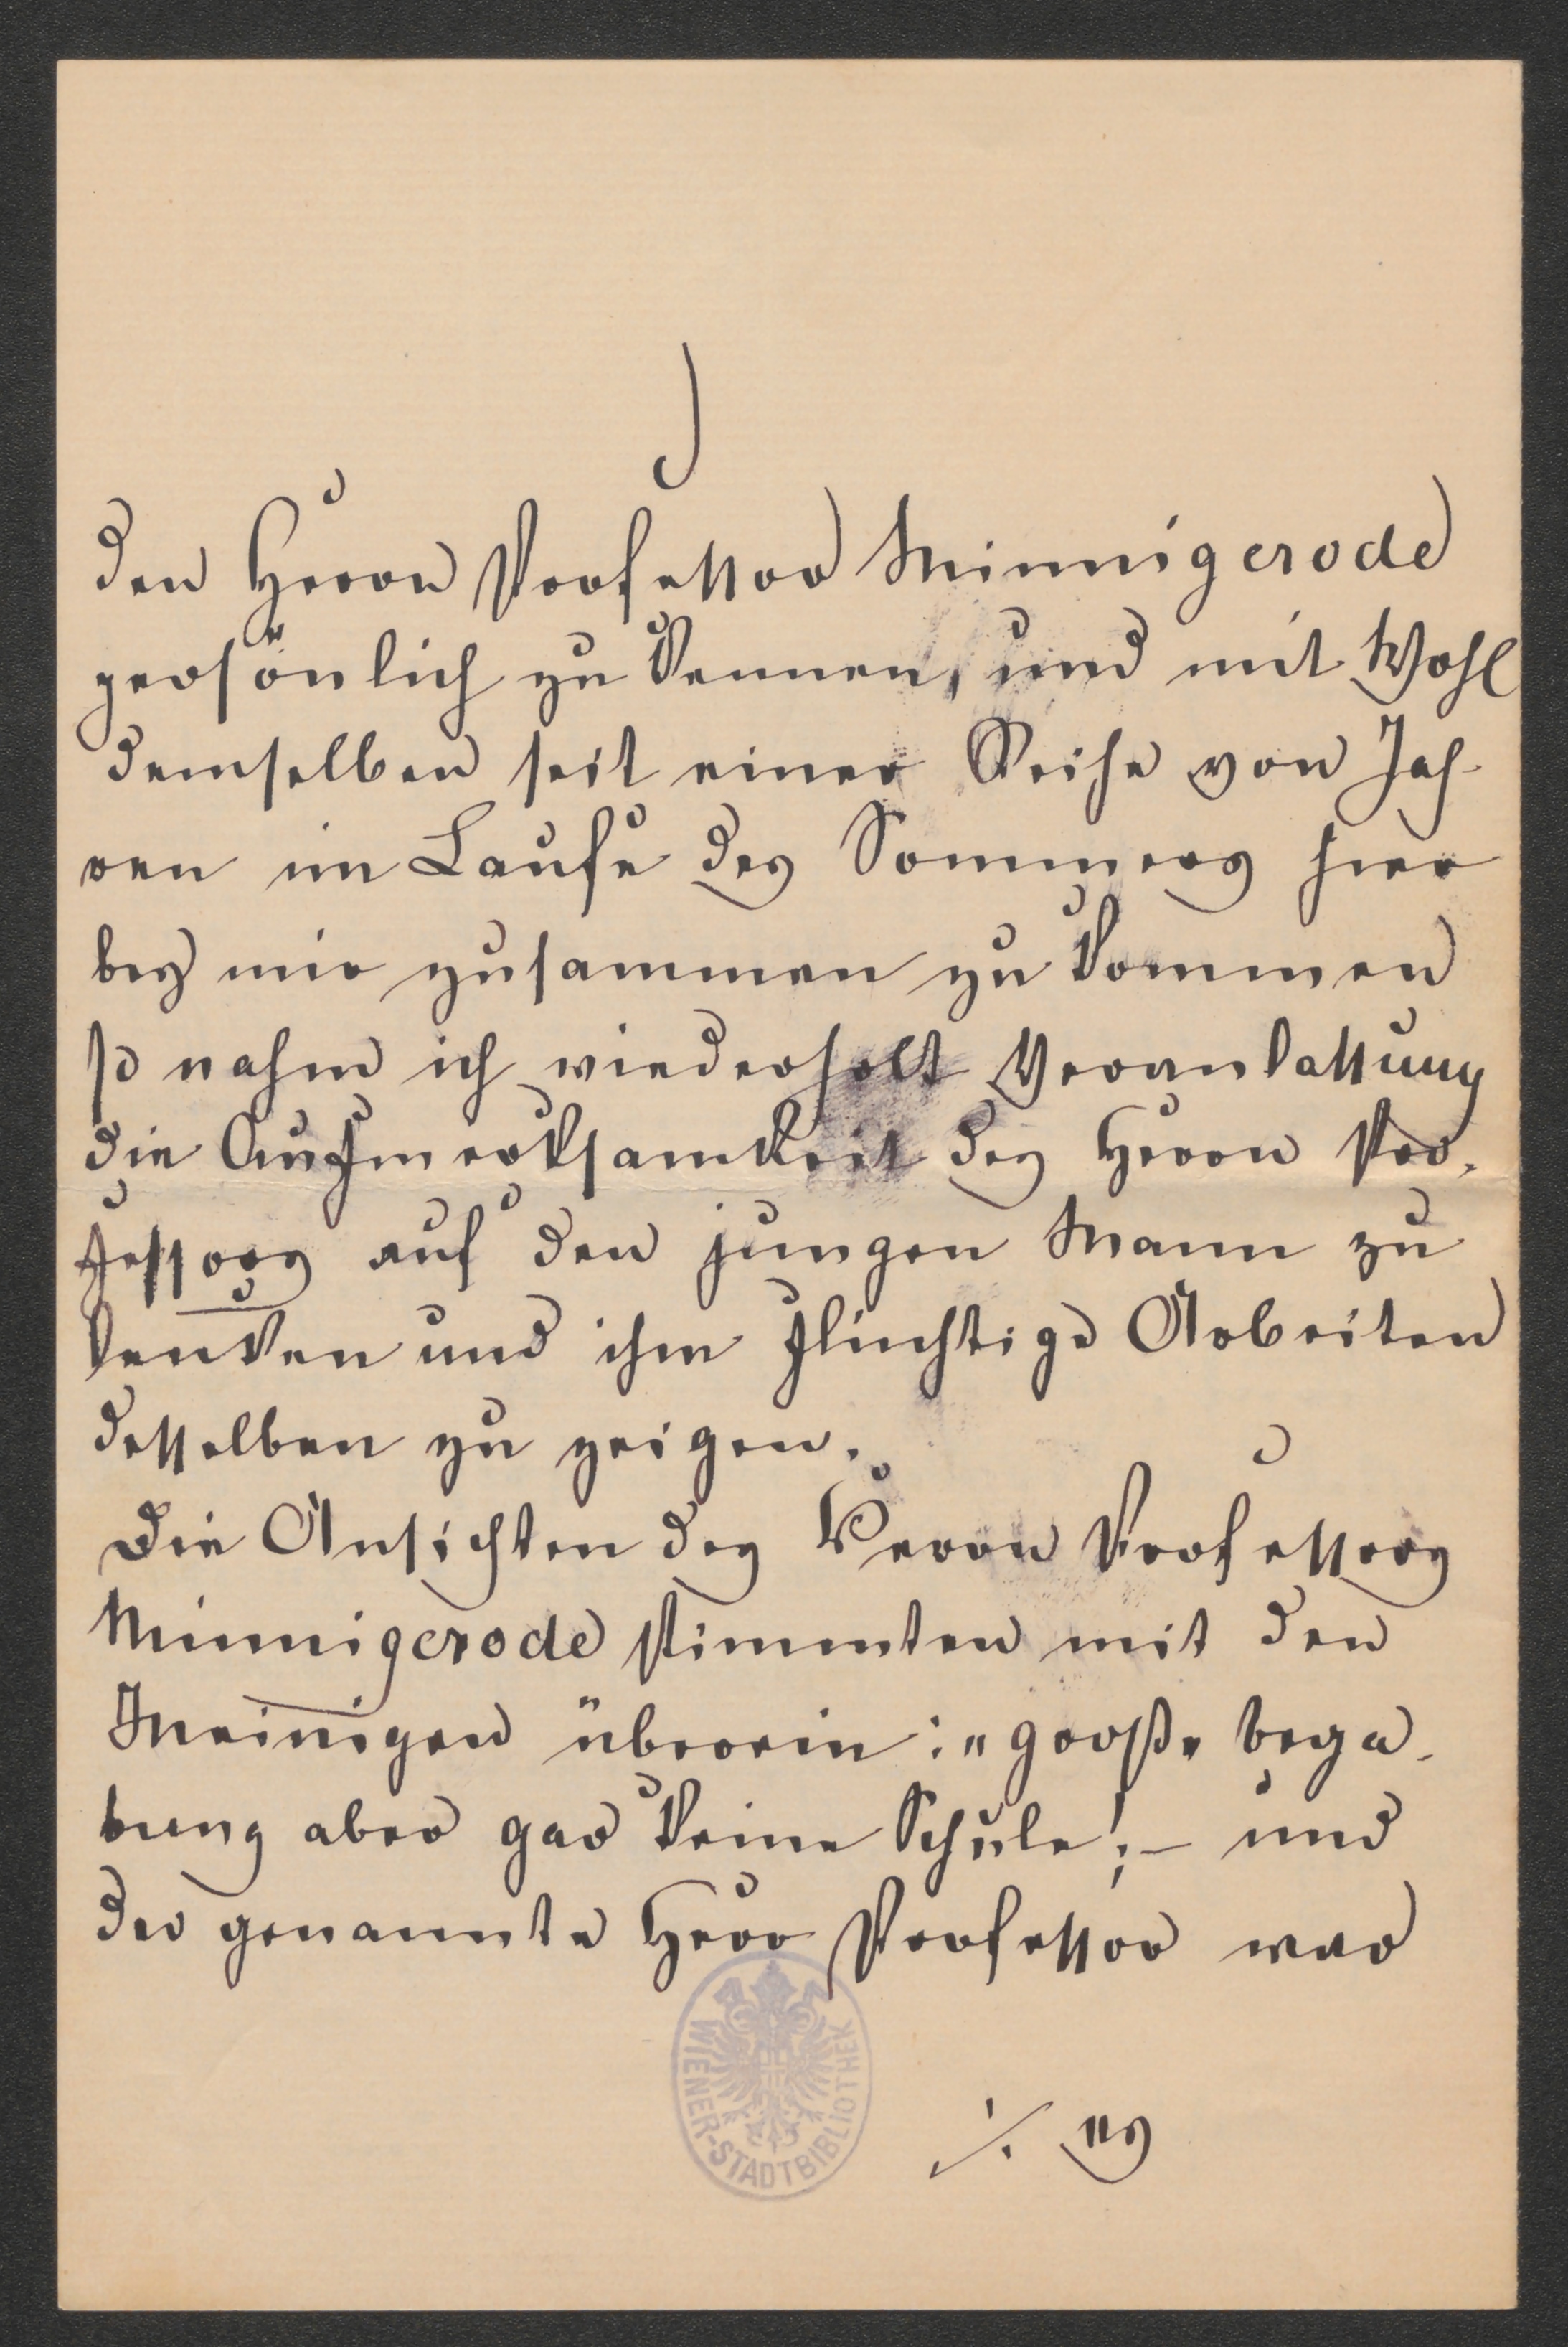 den Herrn Professor Minnigerode
persönlich zu kennen, und mit Wohl
demselben seit einer Reihe von Jah-
ren im Laufe des Sommers hier
bey mir zusammen zu kommen
so nahm ich wiederholt Veranlassung
die Aufmerksamkeit des Herrn Pro-
fessors auf den jungen Mann zu
lenken und ihm flüchtige Arbeiten
desselben zu zeigen.
Die Ansichten des Herrn Professors
Minnigerode stimmten mit den
Meinigen überein: "große bega-
bung aber gar keine Schule!; – und
der genannte Herr Professor war
./. es
WIENER-STADTBIBLIOTHEK